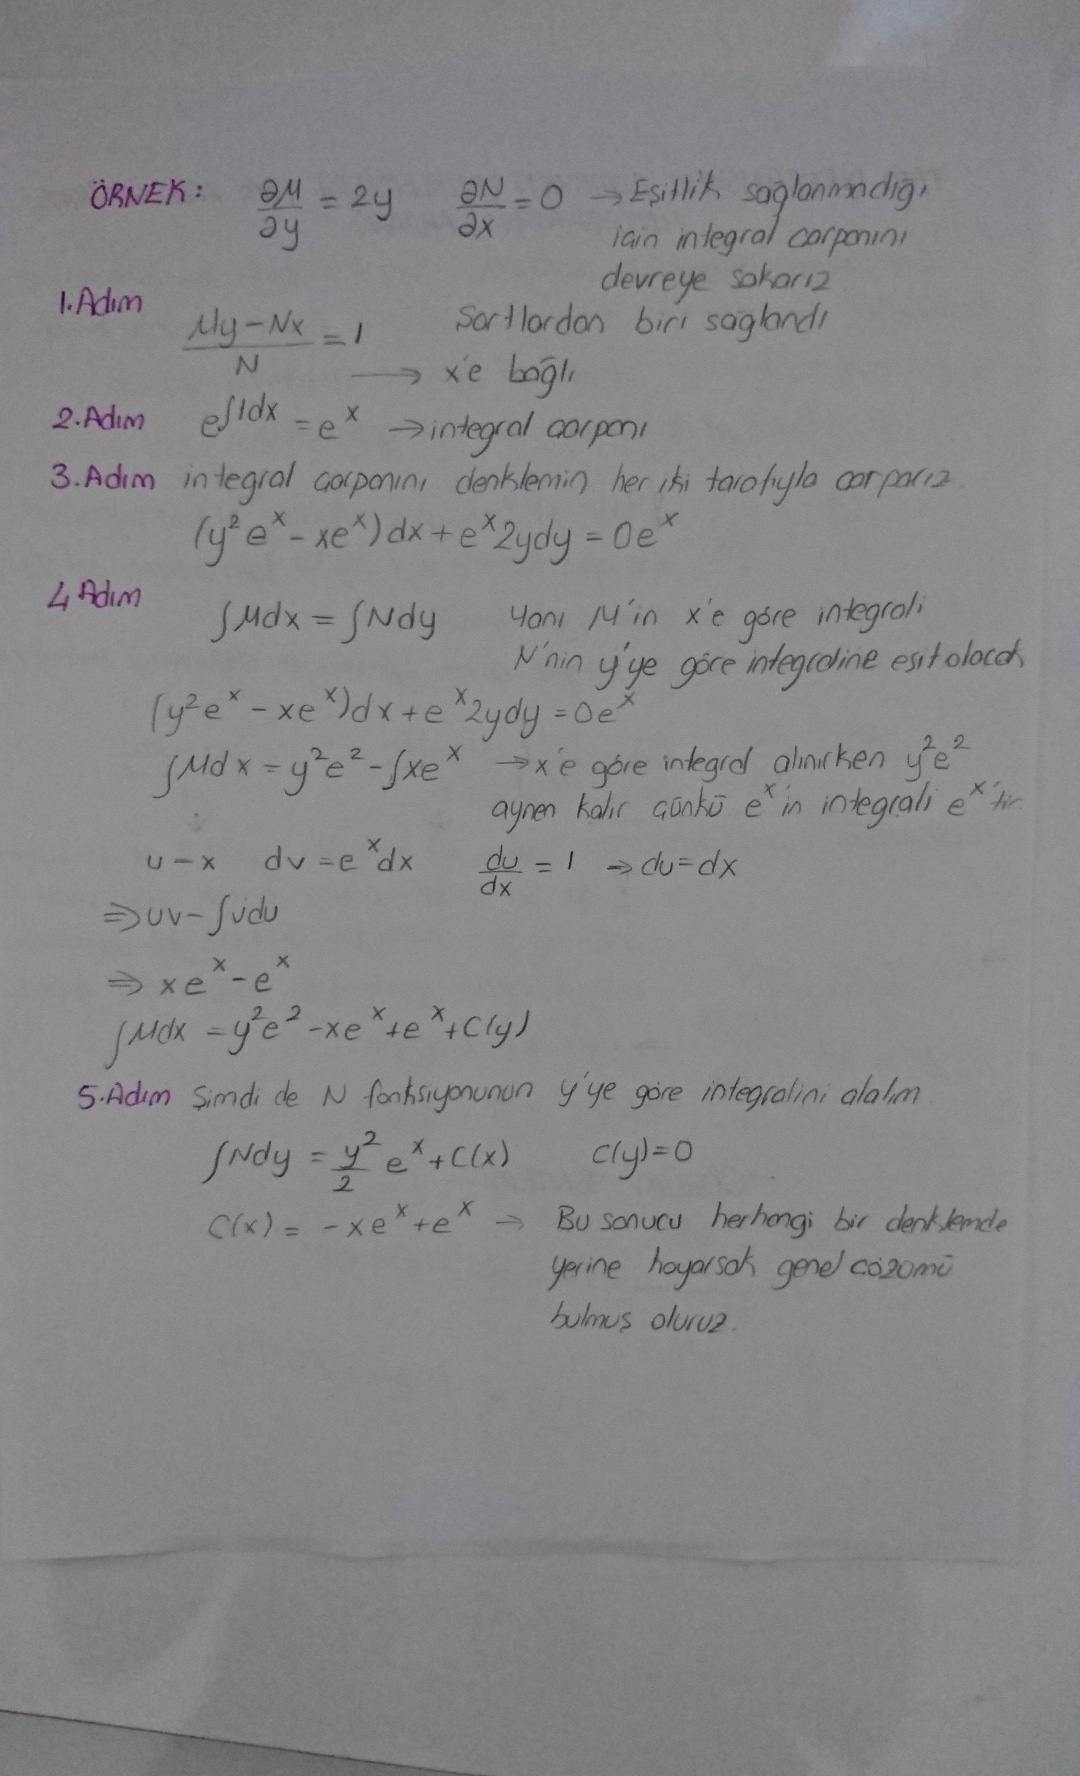 ÖRNEK: ∂M/∂y = 2y ∂N/∂x = 0 → Eşitlik sağlanmadığı
için integral çarpanını
devreye sokarız
1.Adım (My-Nx)/N = 1 Şartlardan biri sağlandı
→ x'e bağlı
2.Adım e^∫1dx = e^x → integral çarpanı
3.Adım integral çarpanını denklemin her iki tarafıyla çarparız.
(y²e^x - xe^x)dx + e^x2ydy = 0e^x
4 Adım
∫Mdx = ∫Ndy Yani M'in x'e göre integrali
N'nin y'ye göre integraline eşit olacak
(y²e^x - xe^x)dx + e^x2ydy = 0e^x
∫Mdx = y²e² - ∫xe^x → x'e göre integral alınırken y²e²
aynen kalır çünkü e^x'in integrali e^x'tir.
u - x dv = e^xdx du/dx = 1 ⇒ du = dx
⇒ uv - ∫vdu
⇒ xe^x - e^x
∫Mdx = y²e² - xe^x + e^x + C(y)
5.Adım Şimdi de N fonksiyonunun y'ye göre integralini alalım
∫Ndy = y²/2 e^x + C(x) C(y) = 0
C(x) = - xe^x + e^x → Bu sonucu herhangi bir denklemde
yerine koyarsak genel çözümü
bulmuş oluruz.